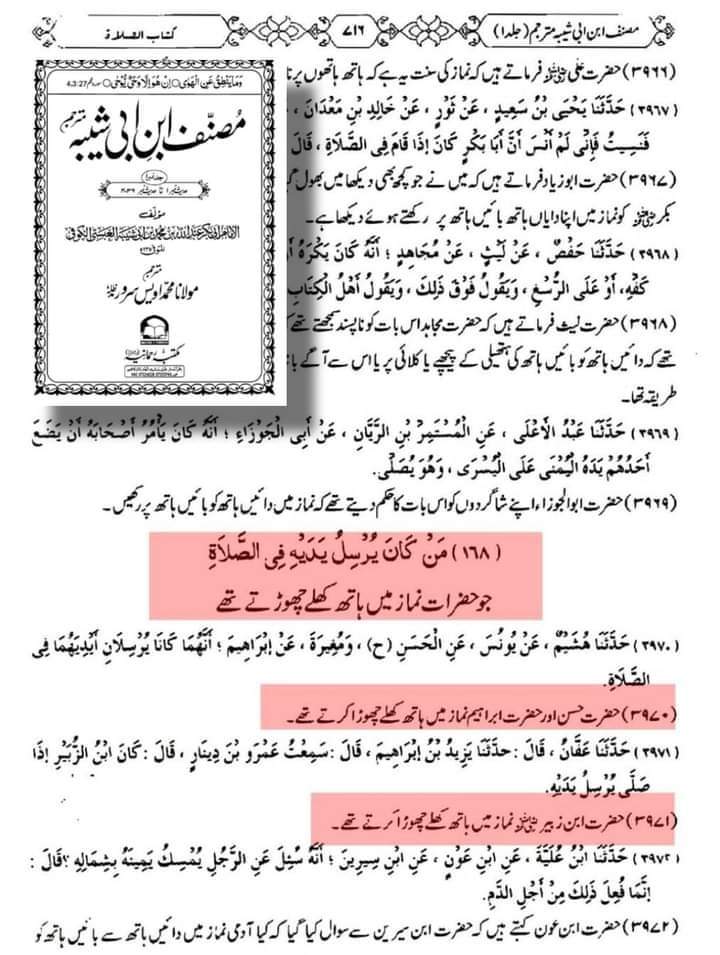 مصنف ابن ابی شیبہ مترجم (جلد ۱)
۷۱۶
کتاب الصلاة
(۳۹۶۶) حضرت علی رضی اللہ عنہ فرماتے ہیں کہ نماز کی سنت یہ ہے کہ ہاتھ ہاتھوں پر
(۳۹۶۷) حَدَّثَنَا يَحْيَى بْنُ سَعِيدٍ، عَنْ ثَوْرٍ، عَنْ خَالِدِ بْنِ مَعْدَانَ،
فَنَسِيتُ فَإِنِّي لَمْ أَنْسَ أَنَّ أَبَا بَكْرٍ كَانَ إِذَا قَامَ فِي الصَّلَاةِ، قَالَ
(۳۹۶۷) حضرت ابو زیاد فرماتے ہیں کہ میں نے جو کچھ بھی دیکھا میں بھول
بکر رضی اللہ عنہ کو نماز میں اپنا دایاں ہاتھ بائیں ہاتھ پر رکھتے ہوئے دیکھا ہے۔
(۳۹۶۸) حَدَّثَنَا حَفْصٌ، عَنْ لَيْثٍ، عَنْ مُجَاهِدٍ؛ أَنَّهُ كَانَ يَكْرَهُ
كَفِّهِ، أَوْ عَلَى الرُّسْغِ، وَيَقُولُ فَوْقَ ذَلِكَ، وَيَقُولُ أَهْلُ الْكِتَابِ
(۳۹۶۸) حضرت لیث فرماتے ہیں کہ حضرت مجاہد اس بات کو ناپسند سمجھتے تھے
تھے کہ دائیں ہاتھ کو بائیں ہاتھ کی ہتھیلی کے پیچھے یا کلائی پر یا اس سے آگے
طریقہ تھا۔
(۳۹۶۹) حَدَّثَنَا عَبْدُ الأَعْلَى، عَنِ الْمُسْتَمِرِّ بْنِ الرَّيَّانِ، عَنْ أَبِي الْجَوْزَاءِ؛ أَنَّهُ كَانَ يَأْمُرُ أَصْحَابَهُ أَنْ يَضَعَ
أَحَدُهُمْ يَدَهُ الْيُمْنَى عَلَى الْيُسْرَى، وَهُوَ يُصَلِّي.
(۳۹۶۹) حضرت ابوالجوزاء اپنے شاگردوں کو اس بات کا حکم دیتے تھے کہ نماز میں دائیں ہاتھ کو بائیں ہاتھ پر رکھیں۔
(۱۶۸) مَنْ كَانَ يُرْسِلُ يَدَيْهِ فِي الصَّلَاةِ
جو حضرات نماز میں ہاتھ کھلے چھوڑتے تھے
(۳۹۷۰) حَدَّثَنَا هُشَيْمٌ، عَنْ يُونُسَ، عَنِ الْحَسَنِ (ح)، وَمُغِيرَةَ، عَنْ إِبْرَاهِيمَ؛ أَنَّهُمَا كَانَا يُرْسِلَانِ أَيْدِيَهُمَا فِي
الصَّلَاةِ.
(۳۹۷۰) حضرت حسن اور حضرت ابراہیم نماز میں ہاتھ کھلے چھوڑا کرتے تھے۔
(۳۹۷۱) حَدَّثَنَا عَفَّانُ، قَالَ: حَدَّثَنَا يَزِيدُ بْنُ إِبْرَاهِيمَ، قَالَ: سَمِعْتُ عَمْرَو بْنَ دِينَارٍ، قَالَ: كَانَ ابْنُ الزُّبَيْرِ إِذَا
صَلَّى يُرْسِلُ يَدَيْهِ.
(۳۹۷۱) حضرت ابن زبیر رضی اللہ عنہ نماز میں ہاتھ کھلے چھوڑا کرتے تھے۔
(۳۹۷۲) حَدَّثَنَا ابْنُ عُلَيَّةَ، عَنِ ابْنِ عَوْنٍ، عَنِ ابْنِ سِيرِينَ؛ أَنَّهُ سُئِلَ عَنِ الرَّجُلِ يُمْسِكُ يَمِينَهُ بِشِمَالِهِ؟ قَالَ:
إِنَّمَا فُعِلَ ذَلِكَ مِنْ أَجْلِ الدَّمِ.
(۳۹۷۲) حضرت ابن عون کہتے ہیں کہ حضرت ابن سیرین سے سوال کیا گیا کہ کیا آدمی نماز میں دائیں ہاتھ سے بائیں ہاتھ کو
وَمَا يَنْطِقُ عَنِ الْهَوٰى ○ اِنْ هُوَ اِلَّا وَحْيٌ يُّوْحٰى ○
مصنف ابن ابی شیبہ
مترجم
مؤلف
الامام ابو بکر عبد اللہ بن محمد بن ابی شیبہ العبسی الکوفی
مترجم
مولانا محمد اویس سرور
مکتبہ رحمانیہ